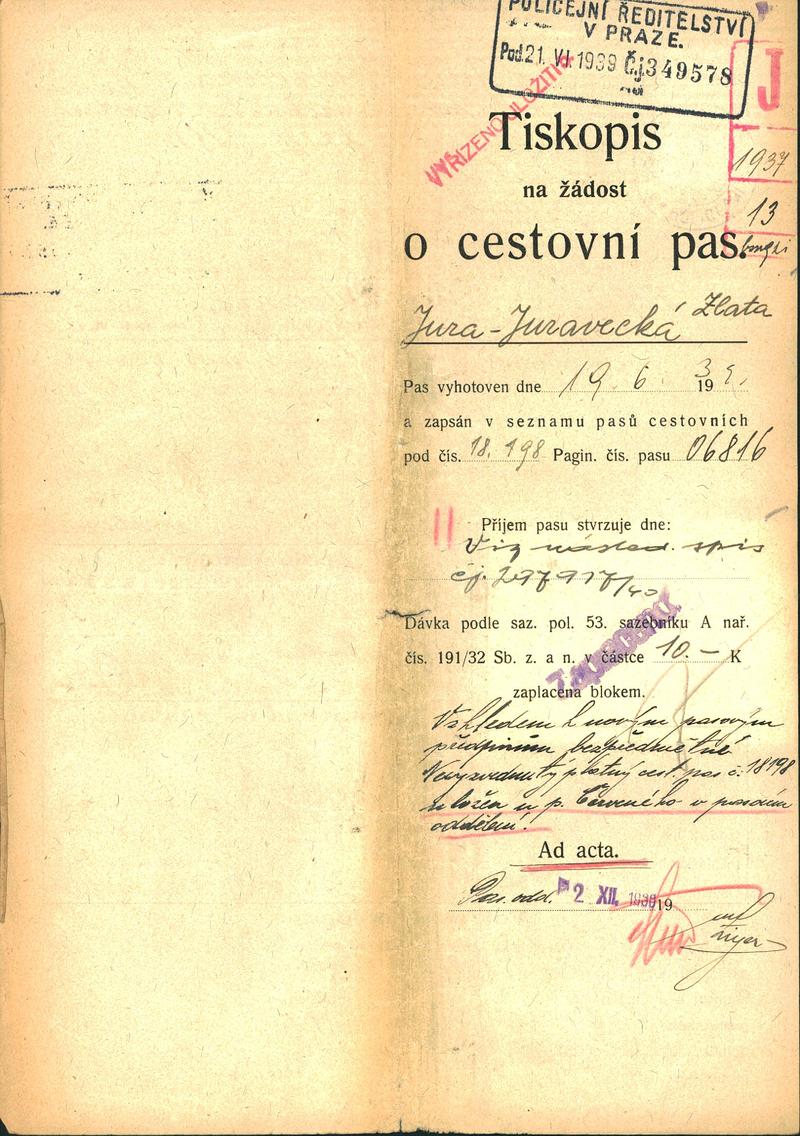 POLICEJNÍ ŘEDITELSTVÍ
V PRAZE.
Pod. 21. VI. 1939 Čj 349578
VYŘÍZENO ULOŽITI
J
1937
13
Tiskopis
na žádost
o cestovní pas.
Jura-Juravecká Zlata
Pas vyhotoven dne 19. 6. 1939.
a zapsán v seznamu pasů cestovních
pod čís. 18.198 Pagin. čís. pasu 06816
Příjem pasu stvrzuje dne:
Viz násled. spis
čj. 297917/40
Dávka podle saz. pol. 53. sazebníku A nař.
čís. 191/32 Sb. z. a n. v částce 10.- K
Zaplaceno
zaplacena blokem.
Vzhledem k novým pasovým
předpisům bezpředmětné
Nevyzvednutý platný cest. pas č. 18198
uložen u p. Červeného v pasovém
oddělení.
Ad acta.
Pas. odd. 2 XII. 1939 19